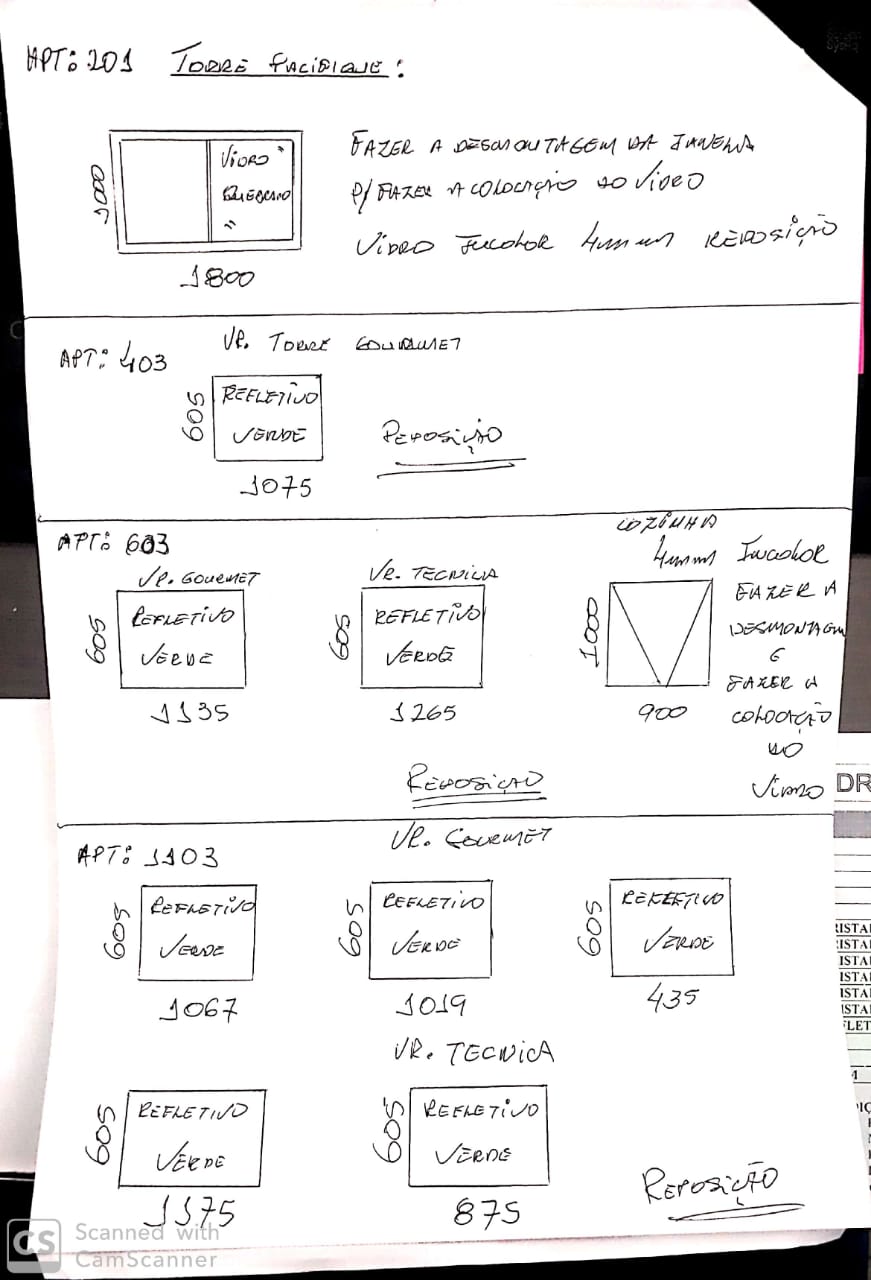 APT: 201 TORRE PACIFIQUE:
VIDRO
QUEBRADO
1000
1800
FAZER A DESMONTAGEM DA JANELA
P/ FAZER A COLOCAÇÃO DO VIDRO
VIDRO INCOLOR 4mm REPOSIÇÃO
APT: 403
VR. TORRE GOURMET
605
REFLETIVO
VERDE
1075
REPOSIÇÃO
APT: 603
VR. GOURMET
605
REFLETIVO
VERDE
1135
VR. TECNICA
605
REFLETIVO
VERDE
1265
COZINHA
4mm INCOLOR
1000
900
FAZER A
DESMONTAGEM
E
FAZER A
COLOCAÇÃO
DO
VIDRO
REPOSIÇÃO
APT: 1103
VR. GOURMET
605
REFLETIVO
VERDE
1067
605
REFLETIVO
VERDE
1019
605
REFLETIVO
VERDE
435
VR. TECNICA
605
REFLETIVO
VERDE
1175
605
REFLETIVO
VERDE
875
REPOSIÇÃO
DR
ISTA
ISTA
ISTA
ISTA
ISTA
ISTA
FLET
CS Scanned with
CamScanner